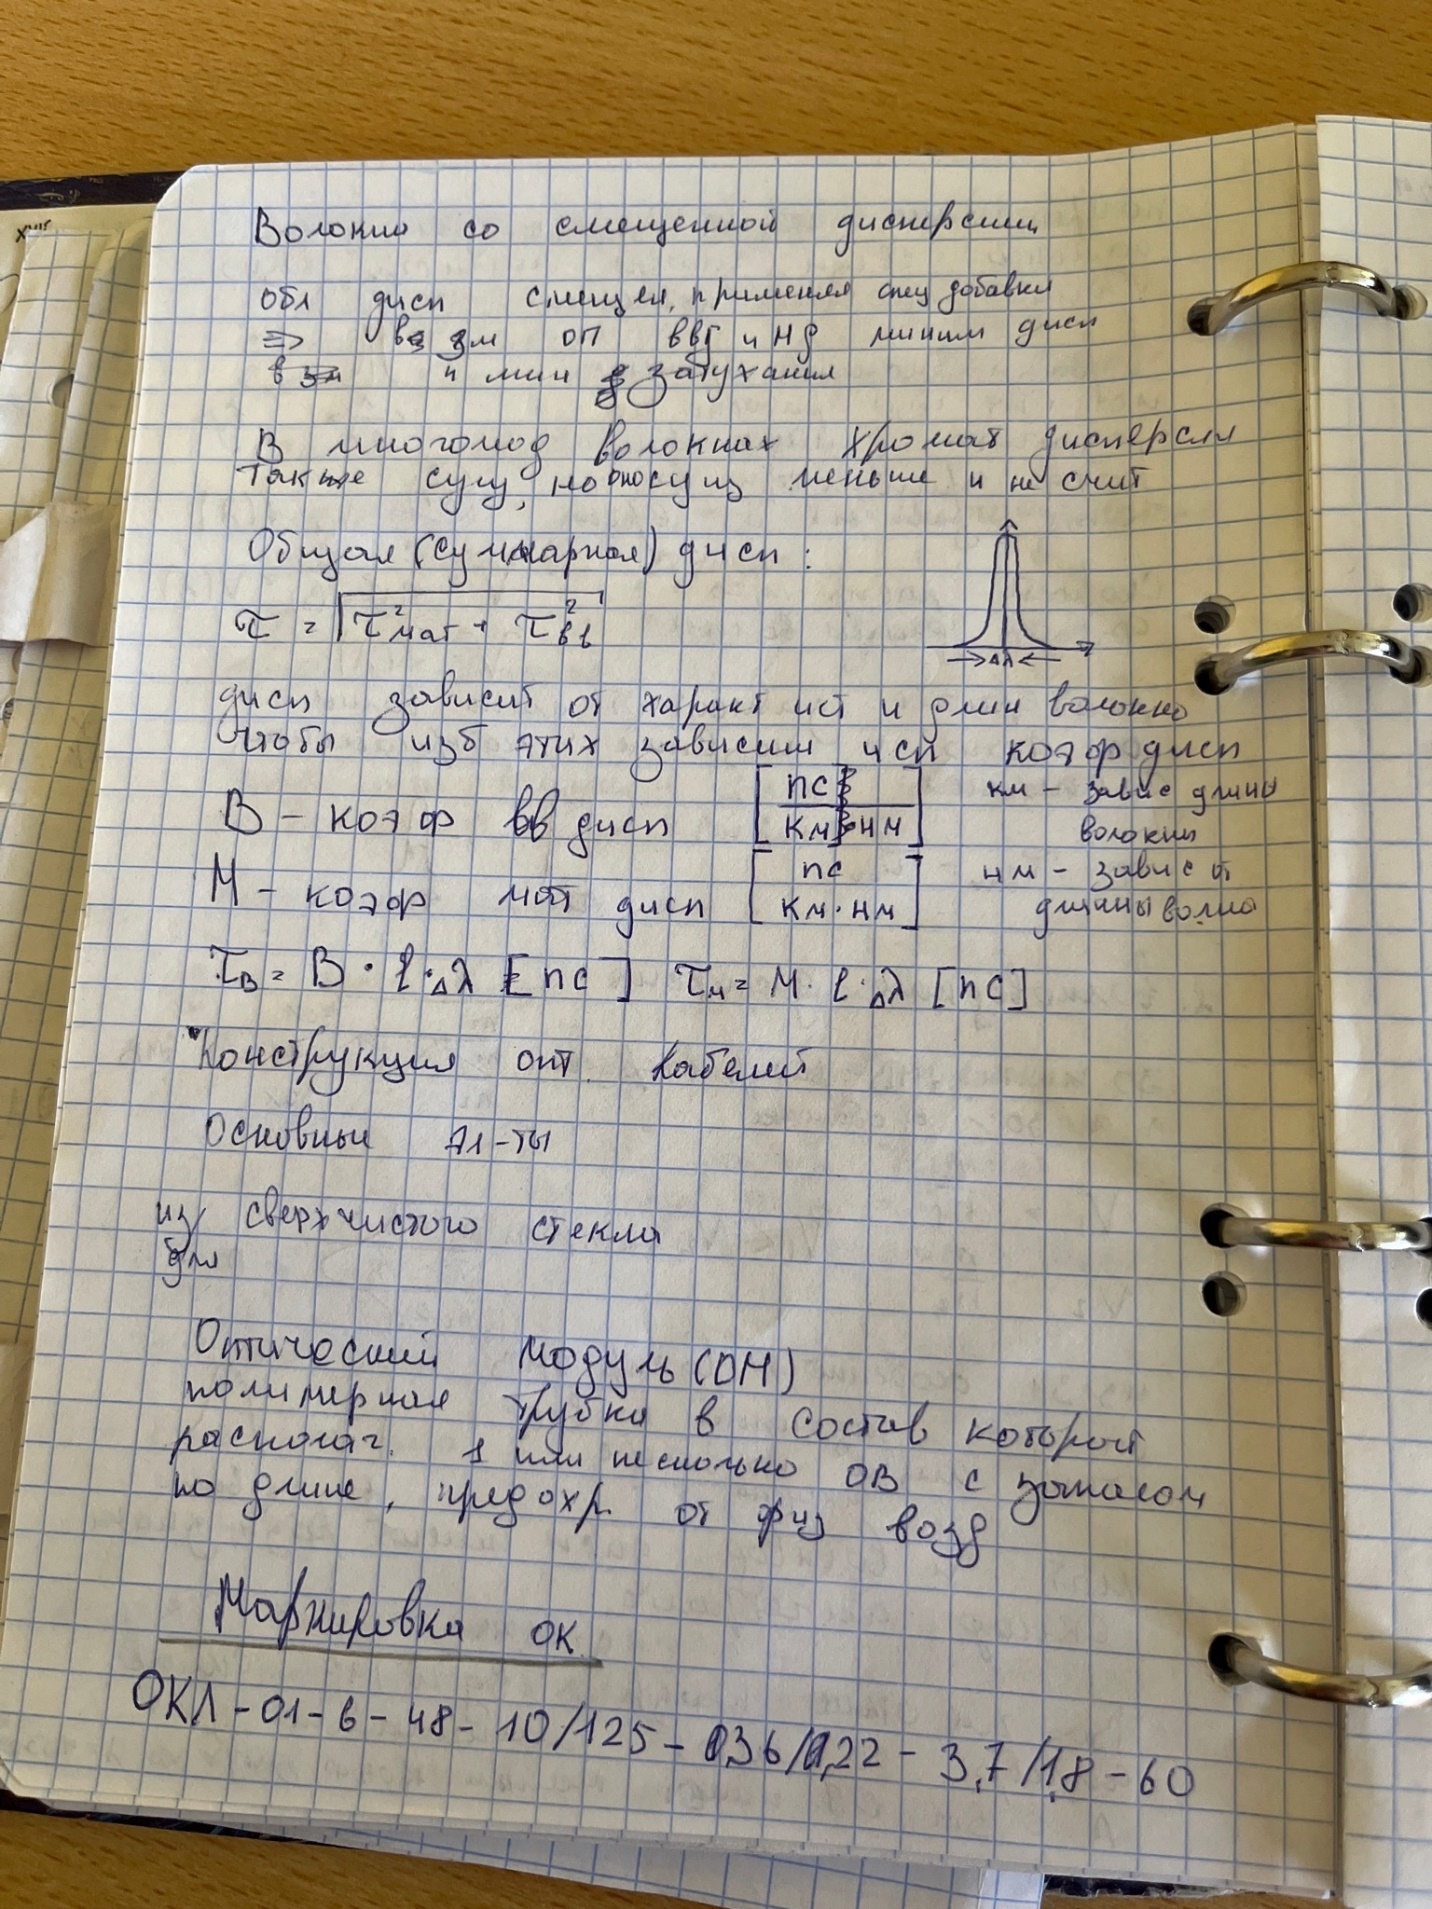 Волокно со смещенной дисперсии
обл дисп смещен, применяя спец добавки
⇒ в 3м ОП ВВГ и НД миним дисп
в и мин затухания
В многомод волокнах хромат дисперсия
также сущ, но оносущ меньше и не счит
Общая (суммарная) дисп:
τ = √τ²мат + τ²вв
→Δλ←
дисп зависит от характ ист и длин волокно
чтобы изб этих зависим исп коэф дисп
В - коэф вв дисп [пс / км·нм] км - завис длины
волокны
М - коэф мат дисп [пс / км·нм] нм - завис от
длинны волно
τв = В · l · Δλ [пс] τм = М · l · Δλ [пс]
Конструкция опт. кабелей
Основные эл-ты
из сверхчистого стекла
для
Оптический модуль (ОМ)
полимерная трубка в состав которой
располаг. 1 или несколько ОВ с запасом
по длине, предохр. от физ возд
Маркировка ОК
ОКЛ-01-6-48-10/125-0,36/0,22-3,7/1,8-60